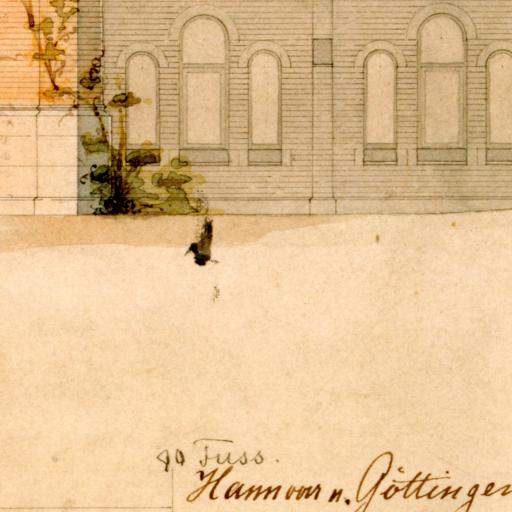 90 Fuss.
Hannover u. Göttingen